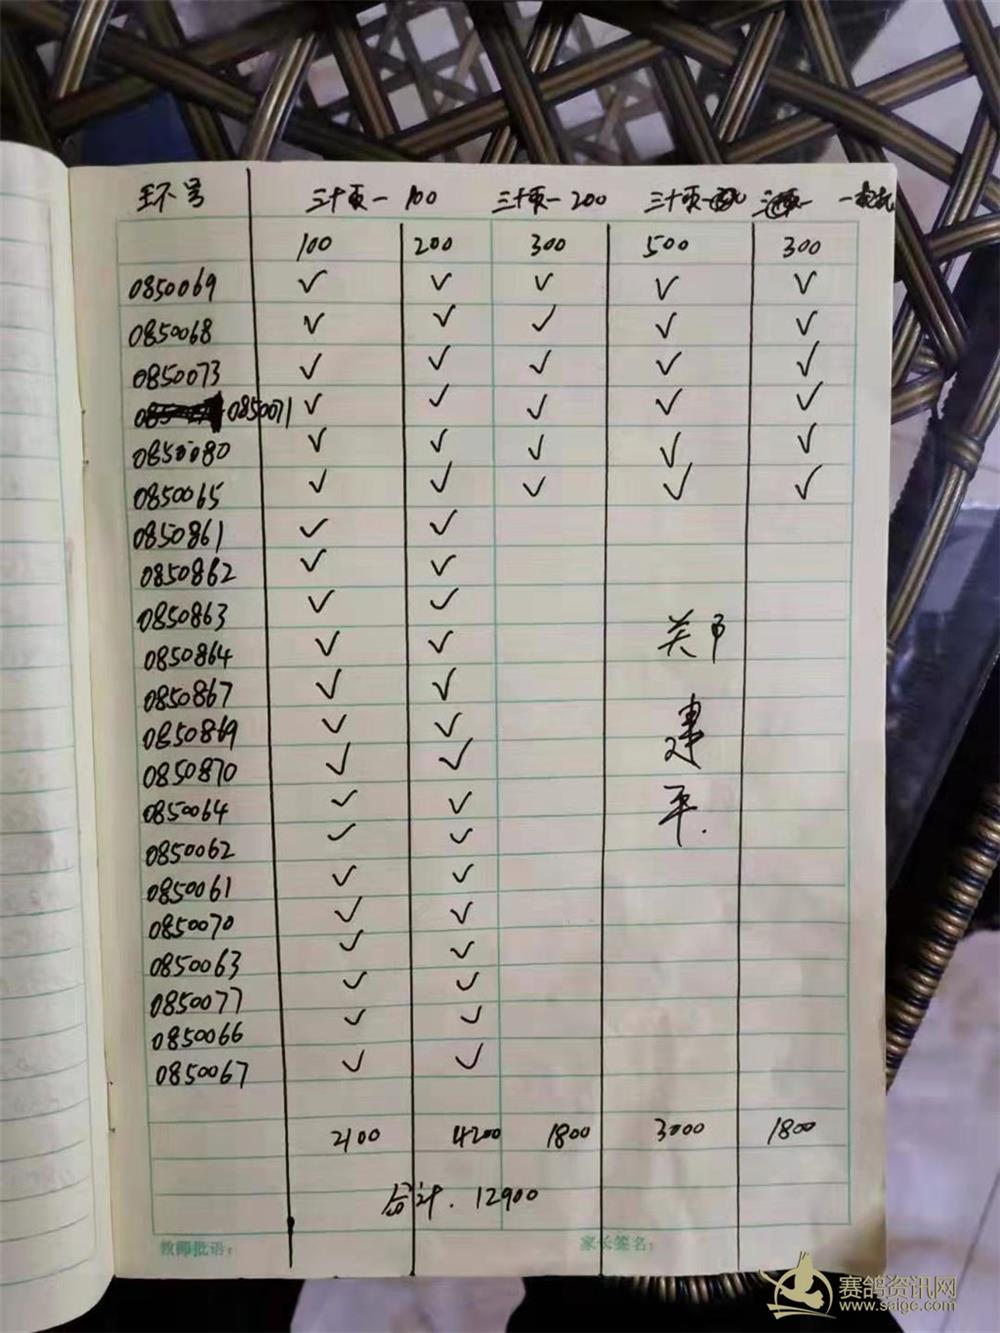 环号 三十取一 100 三十取一 200 三十取一
100 200 300 500 300
0850069 ✓ ✓ ✓ ✓ ✓
0850068 ✓ ✓ ✓ ✓ ✓
0850073 ✓ ✓ ✓ ✓ ✓
0850071 ✓ ✓ ✓ ✓ ✓
0850080 ✓ ✓ ✓ ✓ ✓
0850065 ✓ ✓ ✓ ✓ ✓
0850861 ✓ ✓
0850862 ✓ ✓
0850863 ✓ ✓
0850864 ✓ ✓
0850867 ✓ ✓
0850869 ✓ ✓
0850870 ✓ ✓
0850064 ✓ ✓
0850062 ✓ ✓
0850061 ✓ ✓
0850070 ✓ ✓
0850063 ✓ ✓
0850077 ✓ ✓
0850066 ✓ ✓
0850067 ✓ ✓
关
建
平.
2100 4200 1800 3000 1800
合计. 12900
教师批语: 家长签名:
赛鸽资讯网
www.saigc.com